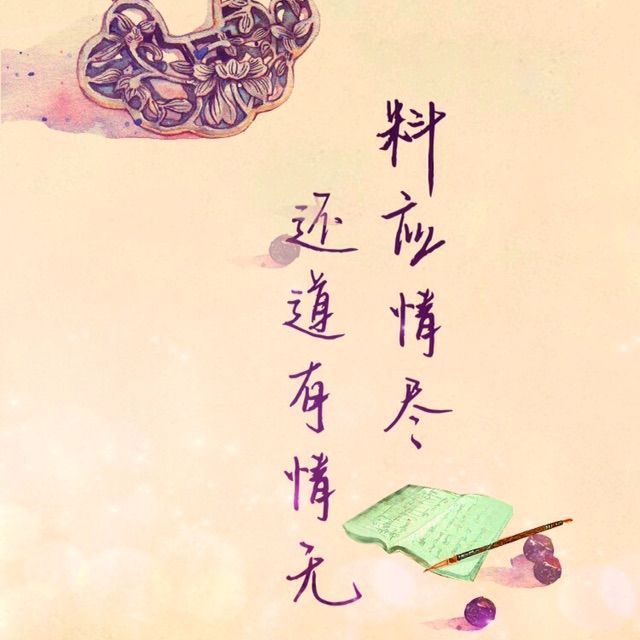 料应情尽
还道有情无